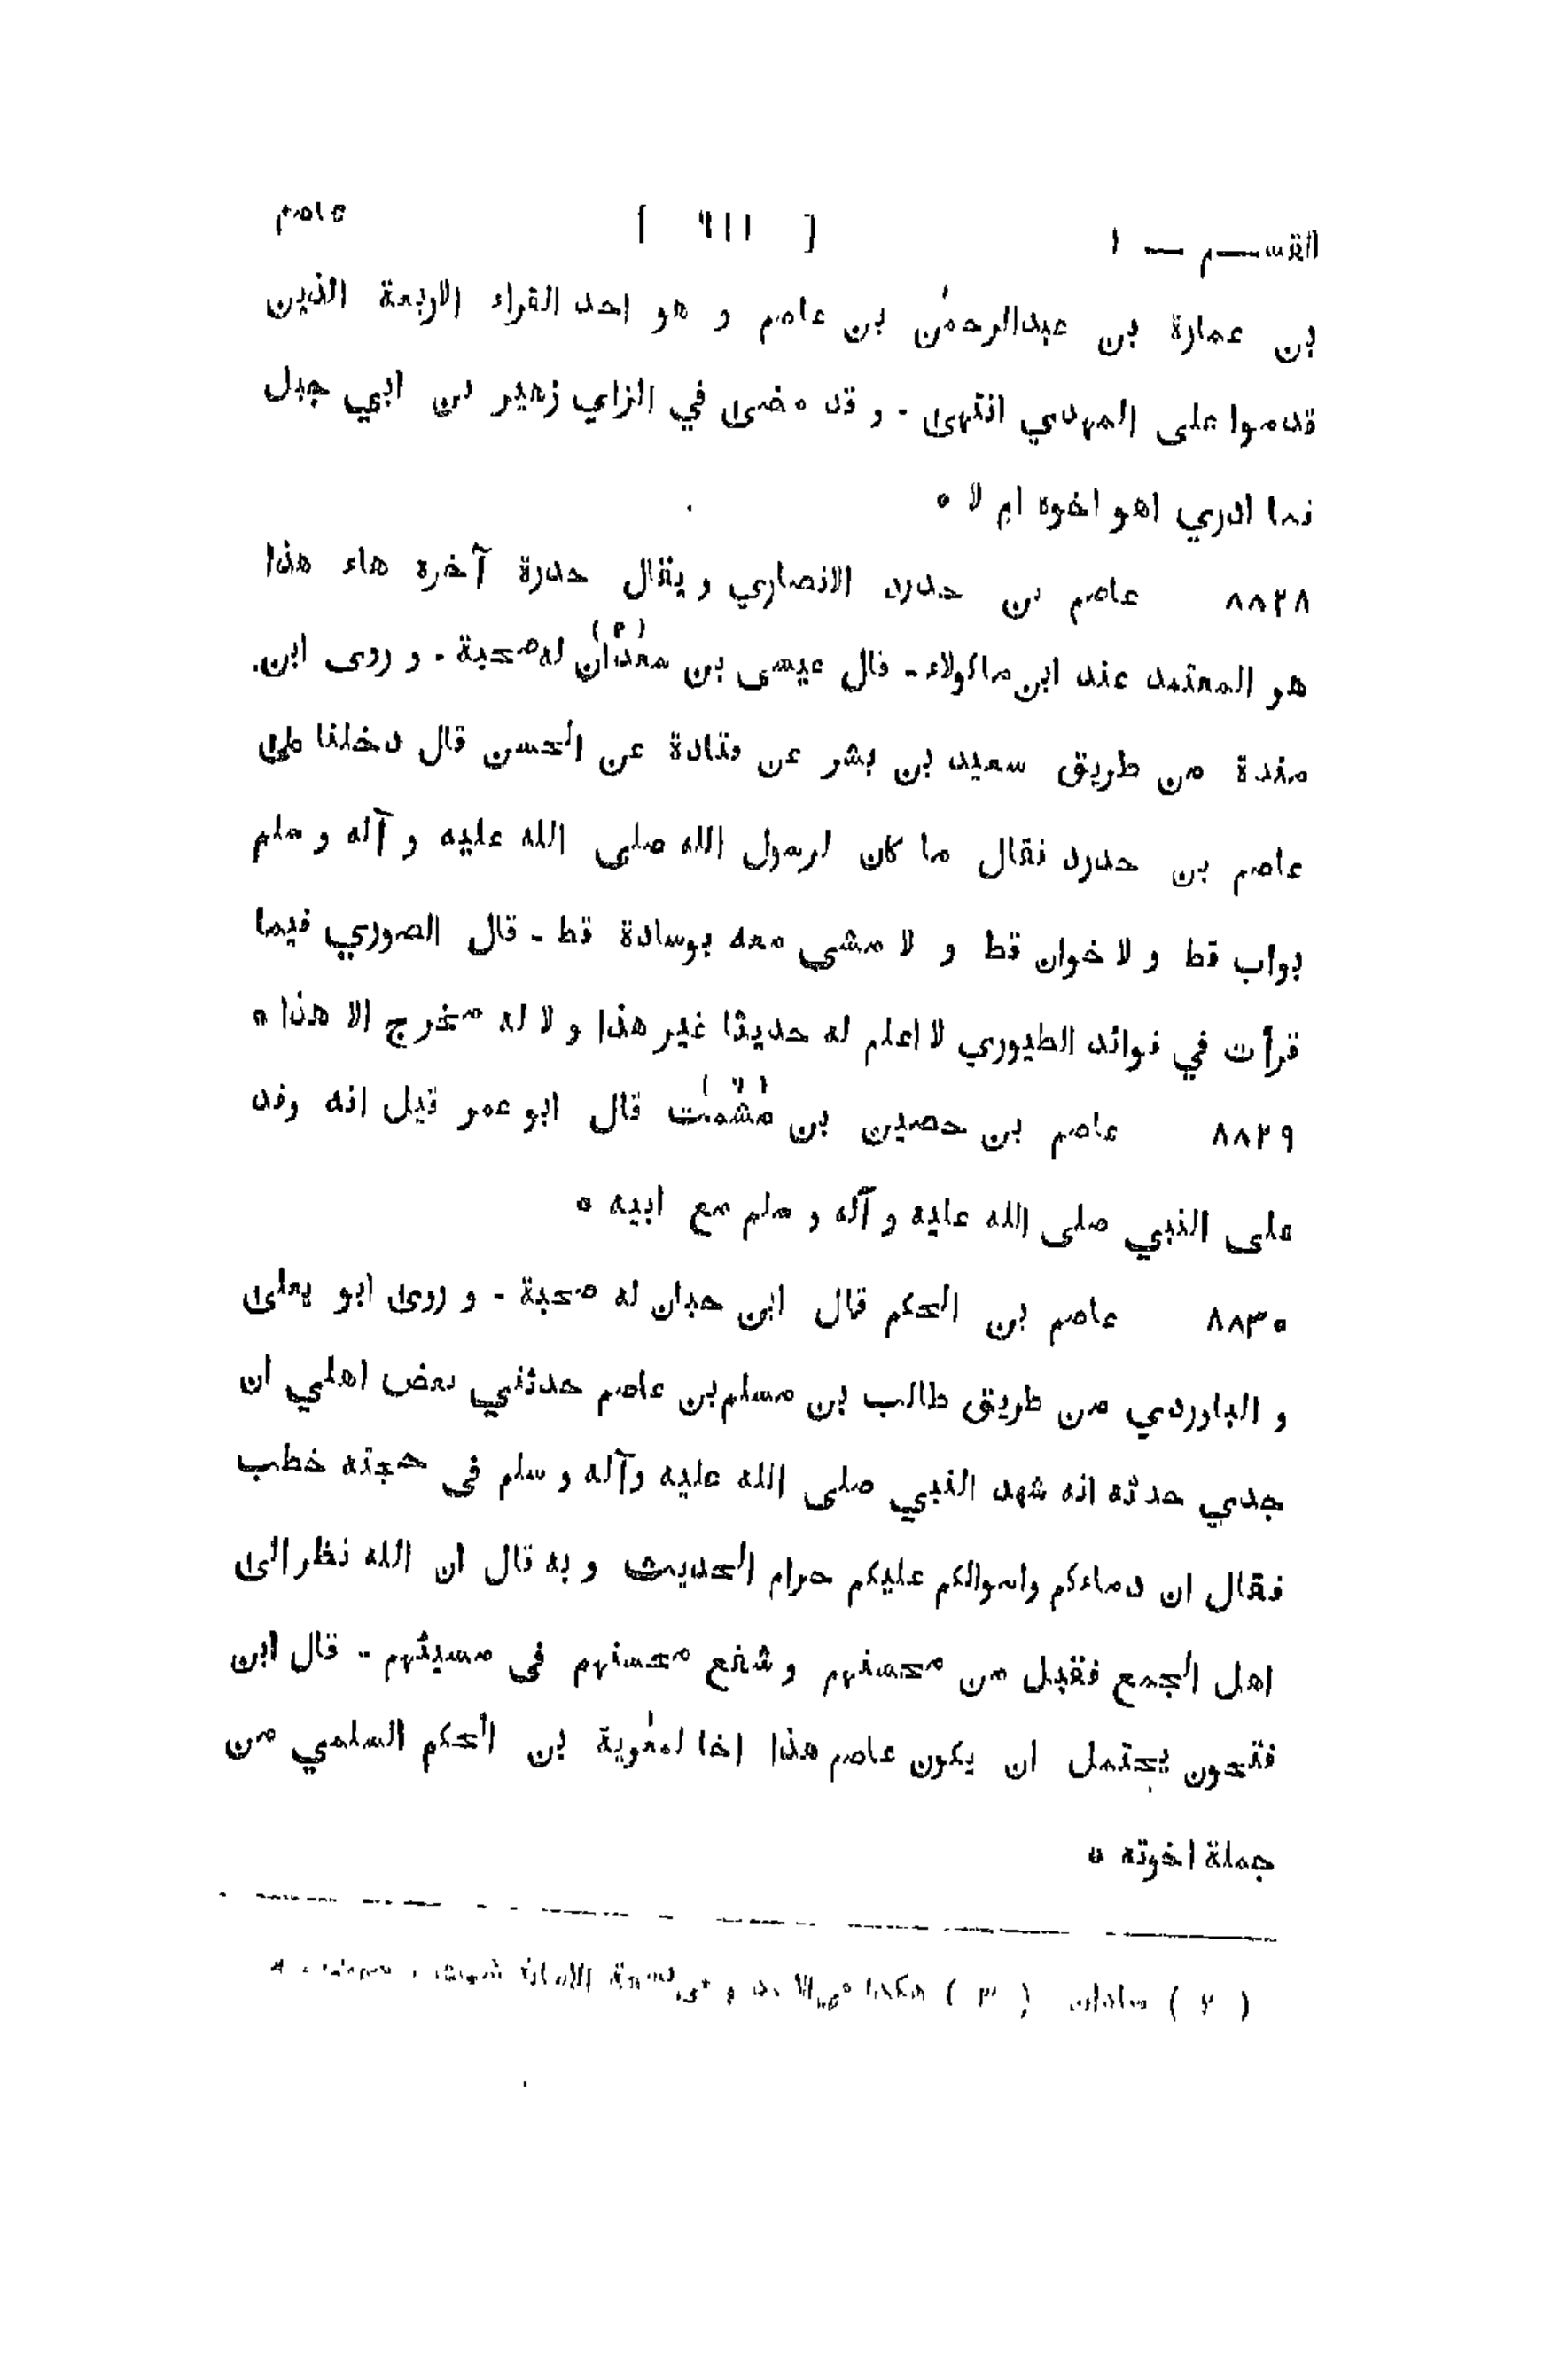 القسم — ١ [ ٦١١ ] عاصم
بن عمارة بن عبدالرحمٰن بن عاصم و هو احد القراء الاربعة الذين
قدموا على المهدي انتهى - و قد مضى في الزاي زهير بن ابي جبل
فما ادري اهو اخوه ام لا ٥
٨٨٢٨ عاصم بن حدرد الانصاري و يقال حدرة آخره هاء هذا
هو المعتمد عند ابن ماكولاء - قال عيسى بن معدان (٢) له صحبة - و روى ابن
مندة من طريق سعيد بن بشر عن قتادة عن الحسن قال دخلنا على
عاصم بن حدرد فقال ما كان لرسول الله صلى الله عليه و آله و سلم
بواب قط و لا خوان قط و لا مشى معه بوسادة قط - قال الصوري فيما
قرأت في فوائد الطيوري لا اعلم له حديثا غير هذا و لا له مخرج الا هذا ٥
٨٨٢٩ عاصم بن حصين بن مشمت قال ابو عمر قيل انه وفد
على النبي صلى الله عليه و آله و سلم مع ابيه ٥
٨٨٣٠ عاصم بن الحكم قال ابن حبان له صحبة - و روى ابو يعلى
و الباوردي من طريق طالب بن مسلم بن عاصم حدثني بعض اهلي ان
جدي حدثه انه شهد النبي صلى الله عليه وآله و سلم فى حجته خطب
فقال ان دماءكم واموالكم عليكم حرام الحديث و به قال ان الله نظر الى
اهل الجمع فقبل من محسنهم و شفع محسنهم فى مسيئهم - قال ابن
فتحون يحتمل ان يكون عاصم هذا اخا لمعٰوية بن الحكم السلمي من
جملة اخوته ٥
( ٢ ) ( ٣ ) هكذا